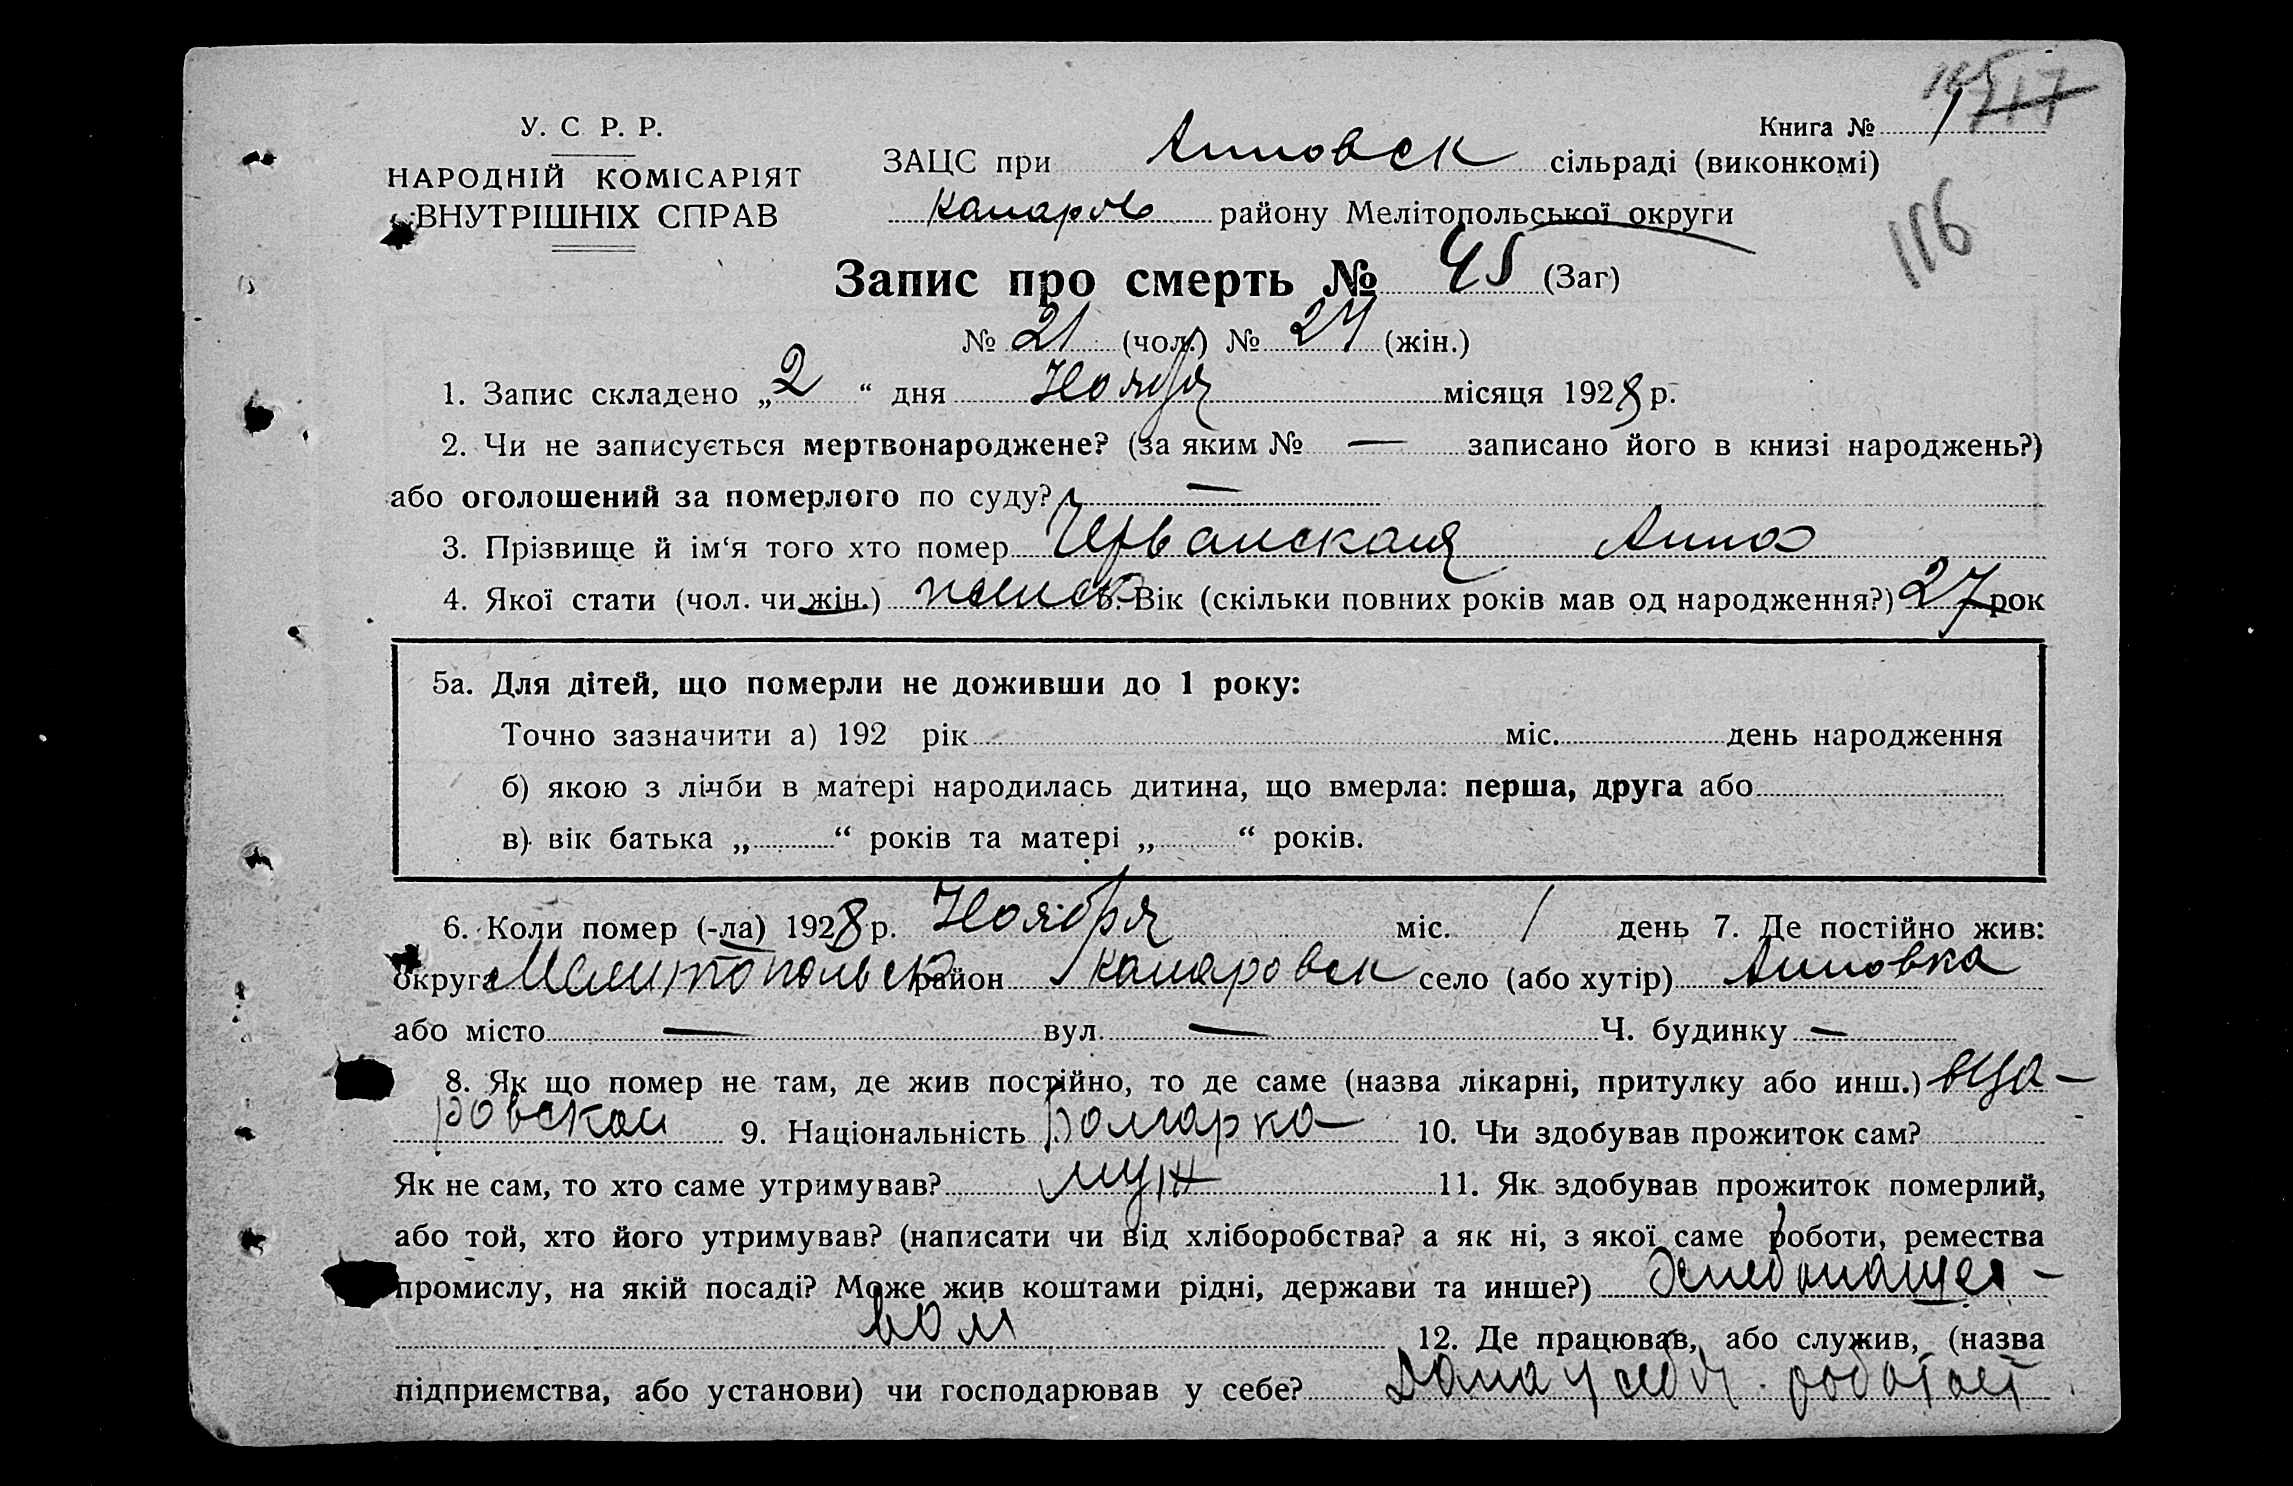 У. С. Р. Р.
НАРОДНІЙ КОМІСАРІЯТ
ВНУТРІШНІХ СПРАВ
Книга № 1
116
ЗАЦС при Анновск сільраді (виконкомі)
района Мелітопольської округи
Запис про смерть № 45 (Заг)
№ 21 (чол.) № 24 (жін.)
1. Запис складено „2“ дня Ноября місяця 1928 р.
2. Чи не записується мертвонароджене? (за яким № — записано його в книзі народжень?)
або оголошений за померлого по суду? —
3. Прізвище й ім‘я того хто помер Анна
4. Якої стати (чол. чи жін.) 5. Вік (скільки повних років мав од народження?) 27 рок
5а. Для дітей, що померли не доживши до 1 року:
Точно зазначити а) 192 рік міс. день народження
б) якою з лічби в матері народилась дитина, що вмерла: перша, друга або
в) вік батька „ “ років та матері „ “ років.
6. Коли помер (-ла) 1928 р. Ноября міс. 1 день 7. Де постійно жив:
округа район село (або хутір) Анновка
або місто — вул. — Ч. будинку —
8. Як що помер не там, де жив постійно, то де саме (назва лікарні, притулку або инш.) вЦа-
ровской 9. Національність Болгарка 10. Чи здобував прожиток сам?
Як не сам, то хто саме утримував? муж 11. Як здобував прожиток померлий,
або той, хто його утримував? (написати чи від хліборобства? а як ні, з якої саме роботи, ремества
промислу, на якій посаді? Може жив коштами рідні, держави та инше?)
вом 12. Де працював, або служив, (назва
підприємства, або установи) чи господарював у себе? Дома у себя работает